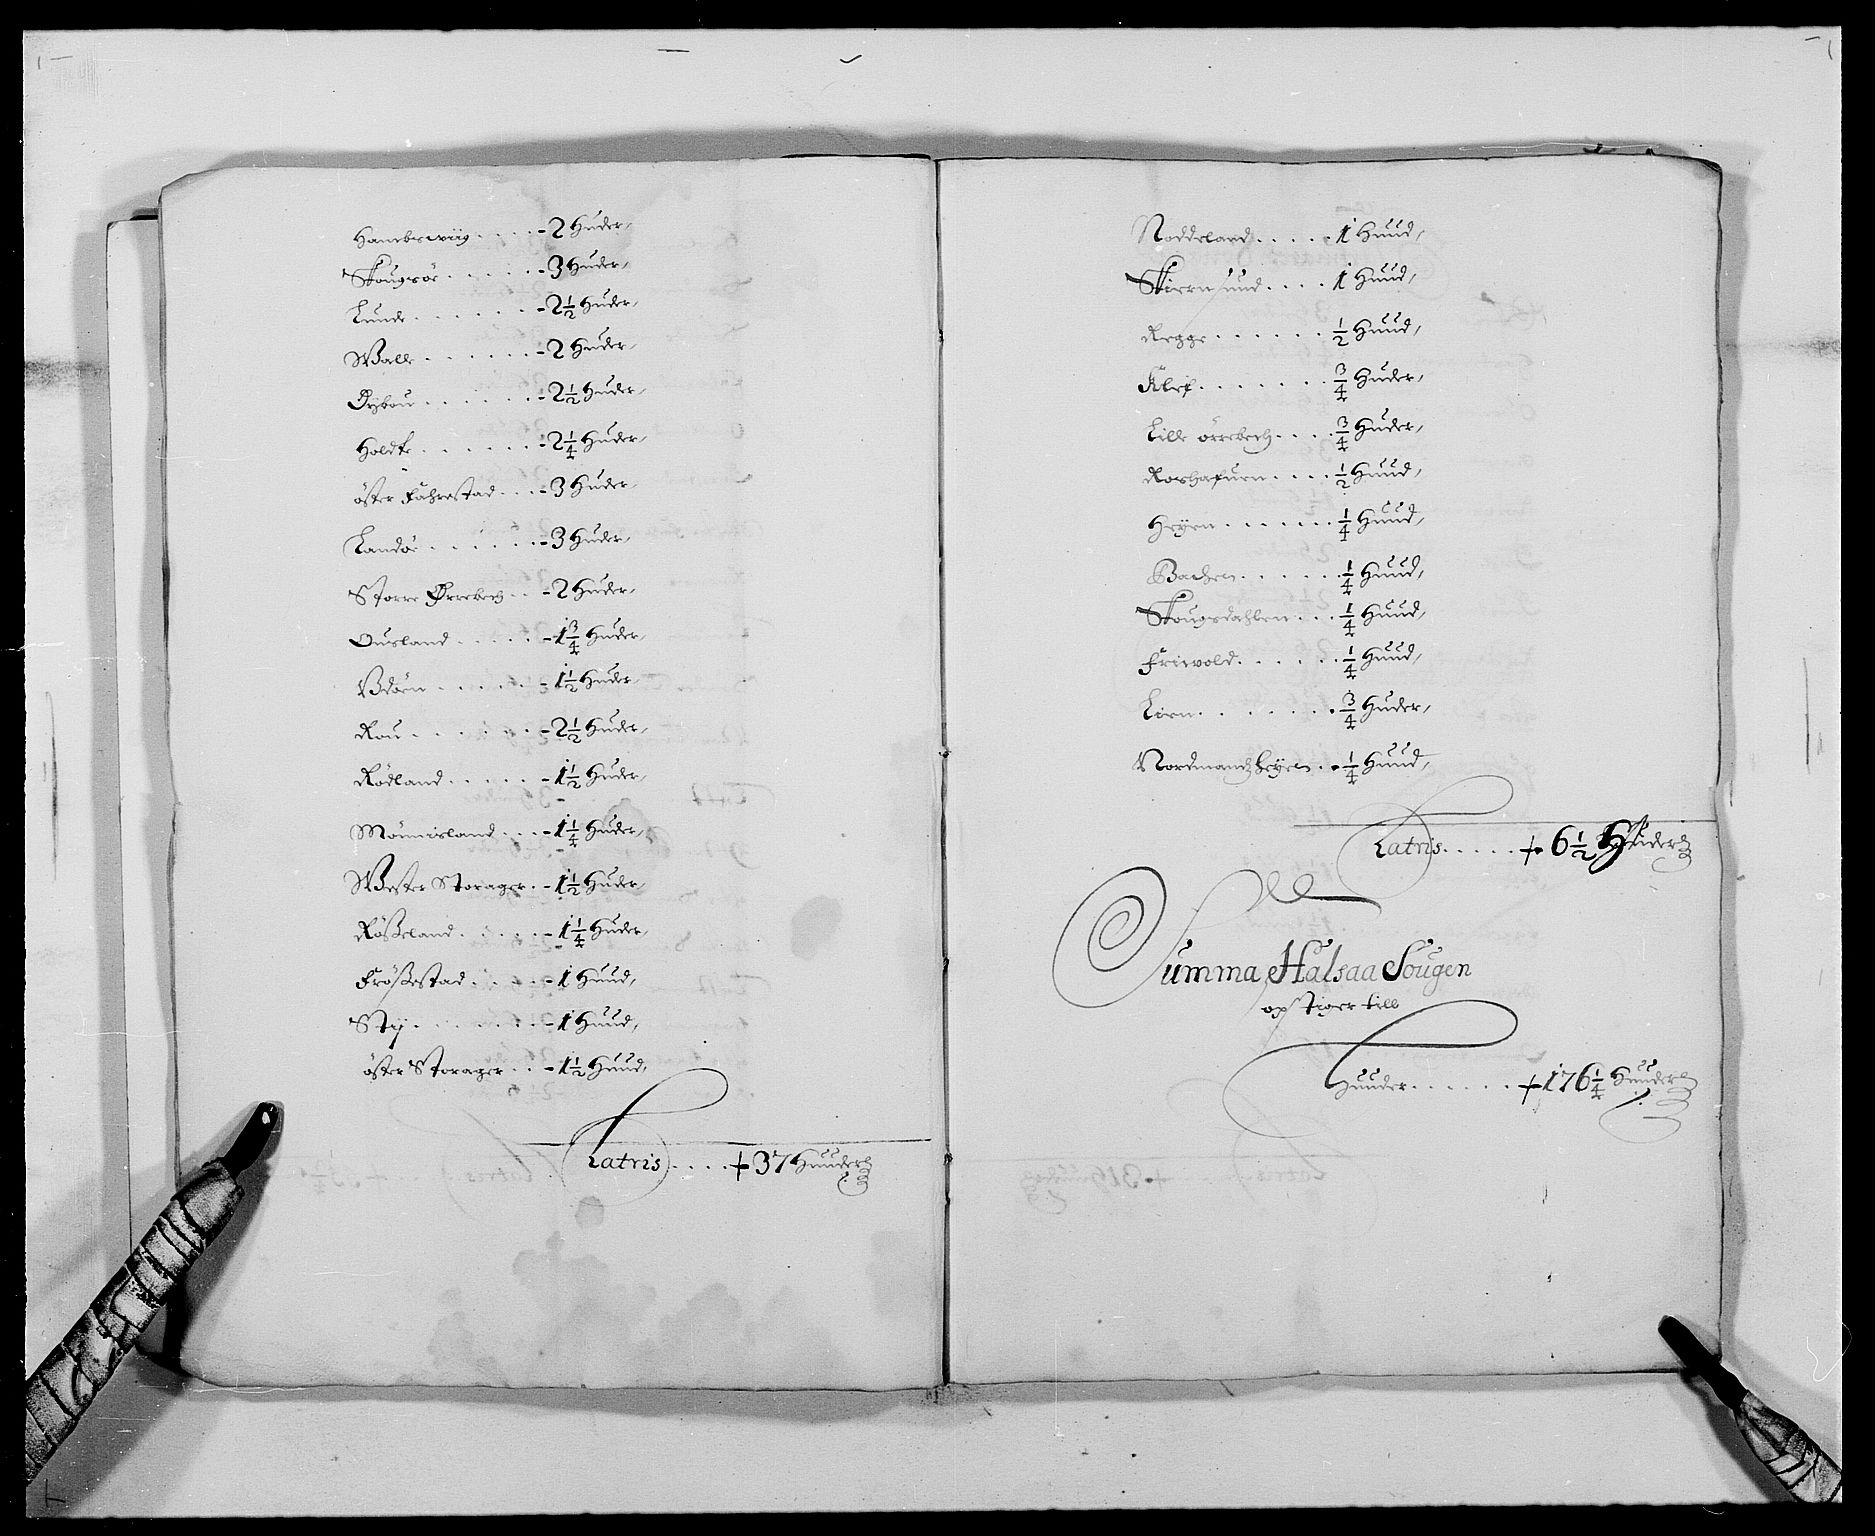 Hambrewiig . . . . - 2 Huder,
Skougsöe . . . . . - 3 Huder,
Lunde . . . . . . - 2 1/2 Huder,
Walle . . . . . . - 2 Huder,
Dybou . . . . . . - 2 1/2 Huder,
Holdte . . . . . . - 2 1/4 Huder,
öster Fahrestad . . . - 3 Huder,
Landöe . . . . . . - 3 Huder,
Storre Ørrebech . . - 2 Huder,
Ousland . . . . . - 1 3/4 Huder,
Vdöen . . . . . - 1 1/2 Huder,
Rou . . . . . . - 2 1/2 Huder,
Rödland . . . . . - 1 1/2 Huder,
Mönnisland . . . - 1 1/4 Huder,
Wester Storager . . - 1 1/2 Huder,
Rößeland . . . . . - 1 1/4 Huder,
Frößestad . . . . . - 1 Huud,
Sty . . . . . . . - 1 Huud,
öster Storager . . - 1 1/2 Huud,
Latris . . . . + 37 Huuder
Noddeland . . . . . 1 Huud,
Skiernsund . . . . 1 Huud,
Regge . . . . . . 1/2 Huud,
Klef . . . . . . . 3/4 Huder,
Lille örrebech . . . . 3/4 Huder,
Roshafuen . . . . 1/2 Huud,
Heyen . . . . . . . 1/4 Huud,
Bachen . . . . . . 1/4 Huud,
Skougsdahlen . . . 1/4 Huud,
Friewold . . . . . . 1/4 Huud,
Lien . . . . . . . 3/4 Huder,
Nordmandtzheyen . . 1/4 Huud,
Latris . . . . . + 6 1/2 Huder
Summa, Halsaa Sougen
opstiger till
Huuder . . . . . . + 176 1/4 Huuder